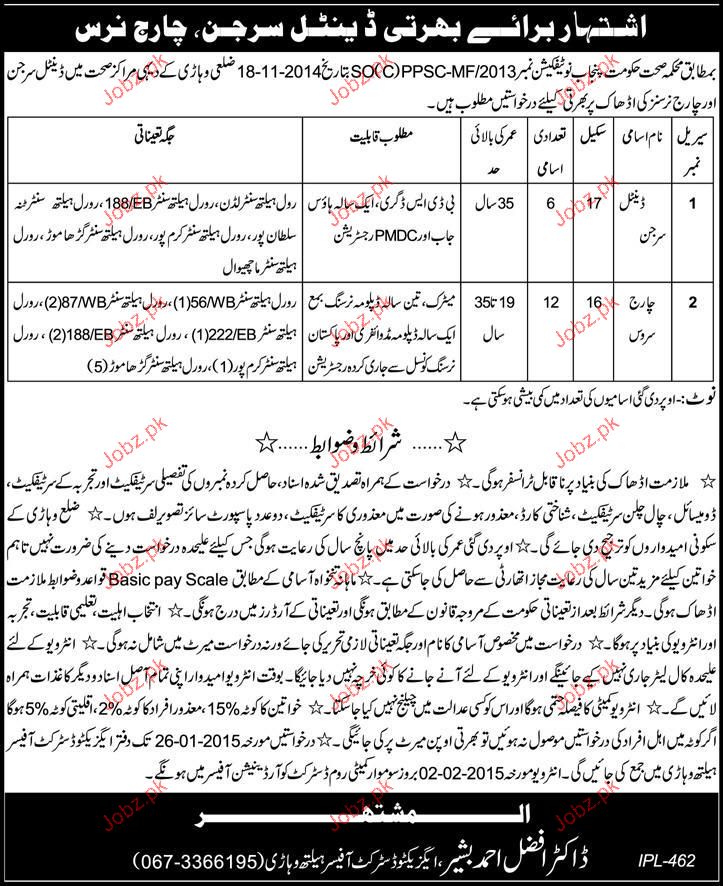 اشتہار برائے بھرتی ڈینٹل سرجن، چارج نرس
بمطابق محکمہ صحت حکومت پنجاب نوٹیفکیشن نمبر SO(C) PPSC-MF/2013 بتاریخ 18-11-2014 ضلعی وہاڑی کے دیہی مراکز صحت میں ڈینٹل سرجن
اور چارج نرسز کی اڈھاک پر بھرتی کیلئے درخواستیں مطلوب ہیں۔
سیریل نمبر
نام اسامی
سکیل
تعدادی اسامی
عمر کی بالائی حد
مطلوب قابلیت
جگہ تعیناتی
1
ڈینٹل سرجن
17
6
35 سال
بی ڈی ایس ڈگری، ایک سالہ ہاؤس جاب اور PMDC رجسٹریشن
رول ہیلتھ سنٹر لڈن، رورل ہیلتھ سنٹر 188/EB، رورل ہیلتھ سنٹر ٹبہ
سلطان پور، رورل ہیلتھ سنٹر کرم پور، رورل ہیلتھ سنٹر گڑھا موڑ، رورل
ہیلتھ سنٹر ماچھیوال
2
چارج سروس
16
12
19 تا 35 سال
میٹرک، تین سالہ ڈپلومہ نرسنگ بمع
ایک سالہ ڈپلومہ مڈوائفری اور پاکستان
نرسنگ کونسل سے جاری کردہ رجسٹریشن
رورل ہیلتھ سنٹر 56/WB(1)، رورل ہیلتھ سنٹر 87/WB(2)، رورل
ہیلتھ سنٹر 222/EB(1)، رورل ہیلتھ سنٹر 188/EB(2)، رورل
ہیلتھ سنٹر کرم پور (1)، رورل ہیلتھ سنٹر گڑھا موڑ (5)
نوٹ:- اوپر دی گئی اسامیوں کی تعداد میں کمی بیشی ہو سکتی ہے۔
☆ ...... شرائط و ضوابط ...... ☆
☆ ملازمت اڈھاک کی بنیاد پر ناقابل ٹرانسفر ہوگی۔ ☆ درخواست کے ہمراہ تصدیق شدہ اسناد، حاصل کردہ نمبروں کی تفصیلی سرٹیفکیٹ اور تجربہ کے سرٹیفکیٹ،
ڈومیسائل، چال چلن سرٹیفکیٹ، شناختی کارڈ، معذور ہونے کی صورت میں معذوری کا سرٹیفکیٹ، دو عدد پاسپورٹ سائز تصویر لف ہوں۔ ☆ ضلع وہاڑی کے
سکونی امیدواروں کو ترجیح دی جائے گی۔ ☆ اوپر دی گئی عمر کی بالائی حد میں پانچ سال کی رعایت ہوگی جس کیلئے علیحدہ درخواست دینے کی ضرورت نہیں تاہم
خواتین کیلئے مزید تین سال کی رعایت مجاز اتھارٹی سے حاصل کی جا سکتی ہے۔ ☆ ماہانہ تنخواہ آسامی کے مطابق Basic pay Scale قواعد و ضوابط ملازمت
اڈھاک ہوگی۔ دیگر شرائط بعد از تعیناتی حکومت کے مروجہ قانون کے مطابق ہونگی اور تعیناتی کے آرڈرز میں درج ہونگی۔ ☆ انتخاب اہلیت، تعلیمی قابلیت، تجربہ
اور انٹرویو کی بنیاد پر ہوگا۔ ☆ درخواست میں مخصوص آسامی کا نام اور جگہ تعیناتی لازمی تحریر کی جائے ورنہ درخواست میرٹ میں شامل نہ ہوگی۔ ☆ انٹرویو کے لئے
علیحدہ کال لیٹر جاری نہیں کیے جائینگے اور انٹرویو کے لئے آنے جانے کا کوئی خرچہ نہیں دیا جائیگا۔ ☆ بوقت انٹرویو امیدوار اپنی تمام اصل اسناد و دیگر کاغذات ہمراہ
لائیں گے۔ ☆ انٹرویو کمیٹی کا فیصلہ حتمی ہوگا اور اس کو کسی عدالت میں چیلنج نہیں کیا جا سکتا۔ ☆ خواتین کا کوٹہ 15%، معذور افراد کا کوٹہ 2%، اقلیتی کوٹہ 5% ہوگا
اگر کوٹہ میں اہل افراد کی درخواستیں موصول نہ ہوئیں تو بھرتی اوپن میرٹ پر کی جائیگی۔ ☆ درخواستیں مورخہ 26-01-2015 تک دفتر ایگزیکٹو ڈسٹرکٹ آفیسر
ہیلتھ وہاڑی میں جمع کی جائیں گی۔ انٹرویو مورخہ 02-02-2015 بروز سوموار کمیٹی روم ڈسٹرکٹ کوآرڈینیشن آفیسر میں ہونگے۔
المشتھر
ڈاکٹر افضل احمد بشیر، ایگزیکٹو ڈسٹرکٹ آفیسر ہیلتھ وہاڑی (067-3366195)
IPL-462
Jobz.pk